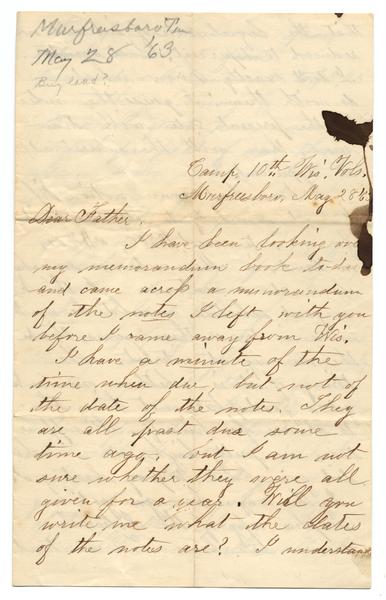 Murfreesboro Ten
May 28 '63
Camp 10th Wis. Vols.
Murfresboro, May 28 63
Dear Father.
I have been looking over
my memorandum book to-day
and came across a memorandum
of the notes I left with you
before I came away from Wis.
I have a minute of the
time when due, but not of
the date of the notes. They
are all past due some
time ago, but I am not
sure whether they were all
given for a year. Will you
write me what the dates
of the notes are? I understand